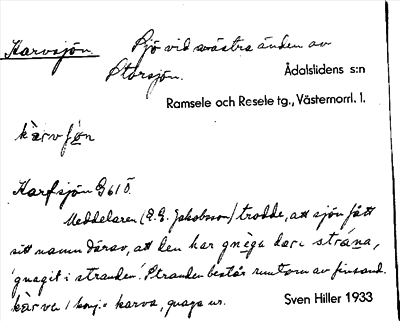 Karvsjön. Sjö vid västra änden av
Storsjön.
Ådalslidens s:n
Ramsele och Resele tg., Västernorrl. l.
kàrvʃön
Karfsjön G61Ö.
Meddelaren (E.G. Jakobsson) trodde, att sjön fått
sitt namn därav, att den har gnèga dar i strána,
'gnagit i stranden'. Stranden består runtom av finsand.
kàrva, konj. = karva, gnaga ur.
Sven Hiller 1933